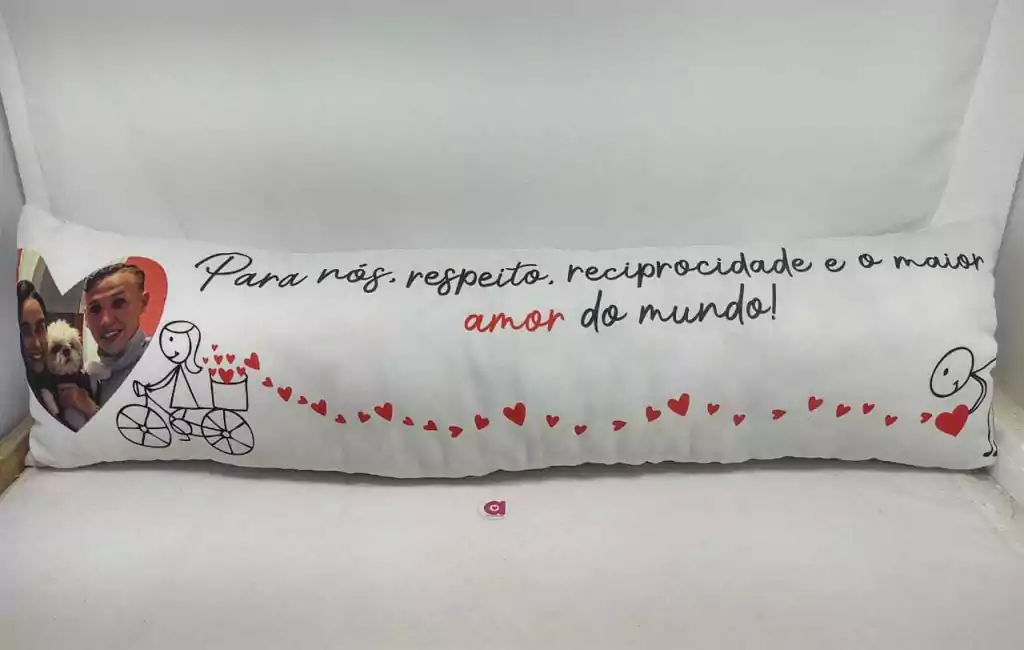 Para nós, respeito, reciprocidade e o maior
amor do mundo!
a